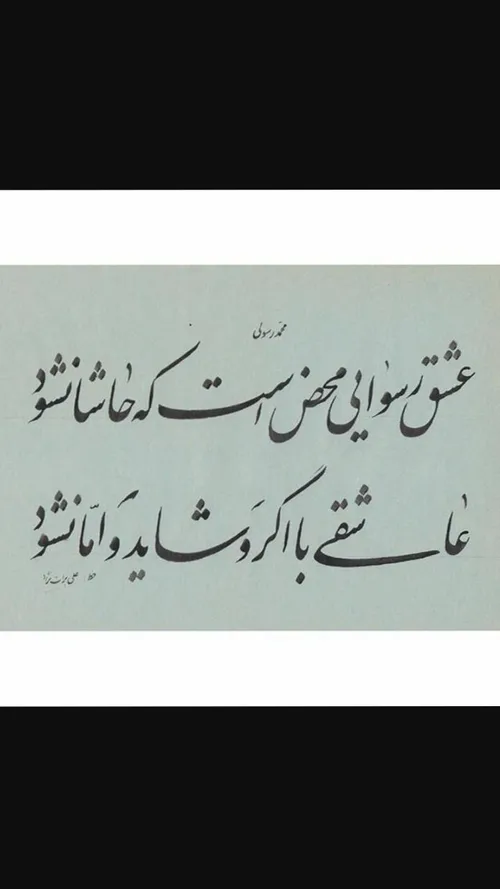 محمّد رسولی
عشق رسوایی محض است که حاشا نشود
عاشقے با اگر و شاید و امّا نشود
خط علی